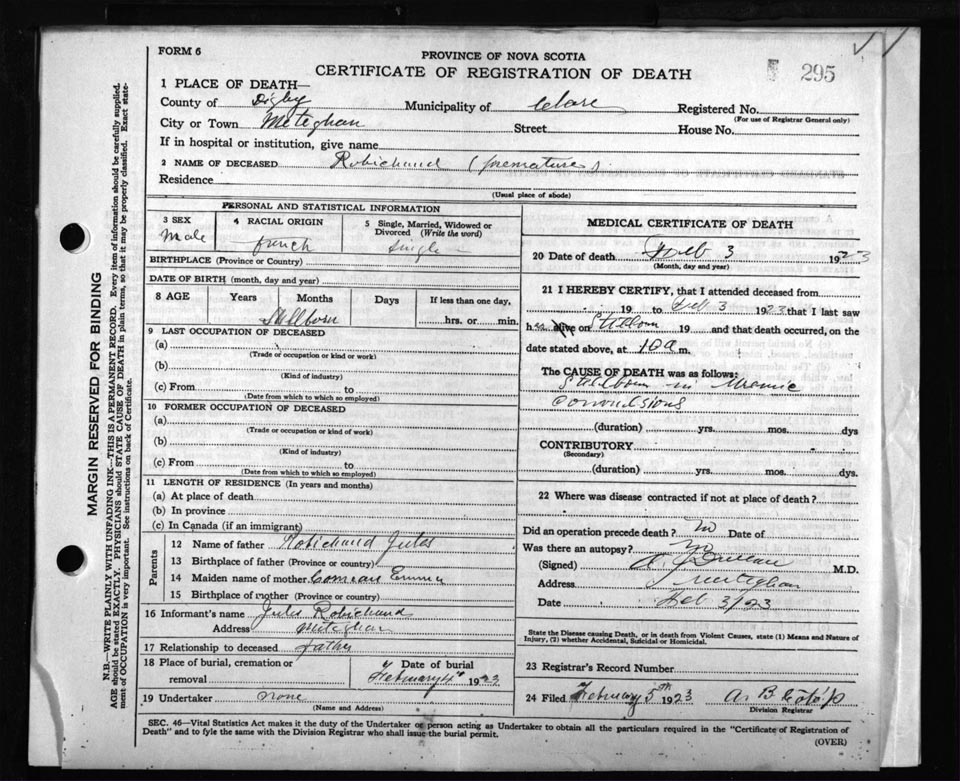 FORM 6
PROVINCE OF NOVA SCOTIA
CERTIFICATE OF REGISTRATION OF DEATH
295
1 PLACE OF DEATH—
County of Digby Municipality of Clare Registered No.
(For use of Registrar General only)
City or Town Meteghan Street House No.
If in hospital or institution, give name
2 NAME OF DECEASED Robichaud (premature)
Residence
(Usual place of abode)
PERSONAL AND STATISTICAL INFORMATION
3 SEX Male
4 RACIAL ORIGIN french
5 Single, Married, Widowed or Divorced (Write the word) Single
BIRTHPLACE (Province or Country)
DATE OF BIRTH (month, day and year)
8 AGE Years Months Days If less than one day,
Stillborn hrs. or min.
9 LAST OCCUPATION OF DECEASED
(a)
(Trade or occupation or kind or work)
(b)
(Kind of industry)
(c) From to
(Date from which to which so employed)
10 FORMER OCCUPATION OF DECEASED
(a)
(Trade or occupation or kind of work)
(b)
(Kind of industry)
(c) From to
(Date from which to which so employed)
11 LENGTH OF RESIDENCE (In years and months)
(a) At place of death
(b) In province
(c) In Canada (if an immigrant)
Parents
12 Name of father Robichaud Jules
13 Birthplace of father (Province or country)
14 Maiden name of mother Comeau Emma
15 Birthplace of mother (Province or country)
16 Informant's name Jules Robichaud
Address Meteghan
17 Relationship to deceased father
18 Place of burial, cremation or removal
Date of burial
February 4th 1923
19 Undertaker none
(Name and Address)
MEDICAL CERTIFICATE OF DEATH
20 Date of death Feb 3 1923
(Month, day and year)
21 I HEREBY CERTIFY, that I attended deceased from
19 to Feb 3 1923 that I last saw
h alive on Stillborn 19 and that death occurred, on the
date stated above, at 10 a m.
The CAUSE OF DEATH was as follows:
Stillborn in Uremic
convulsions
(duration) yrs. mos. dys
CONTRIBUTORY
(Secondary)
(duration) yrs. mos. dys.
22 Where was disease contracted if not at place of death?
Did an operation precede death? no Date of
Was there an autopsy? no
(Signed) M.D.
Address Meteghan
Date Feb 3/23
State the Disease causing Death, or in death from Violent Causes, state (1) Means and Nature of
Injury, (2) whether Accidental, Suicidal or Homicidal.
23 Registrar's Record Number
24 Filed February 5th 1923
Division Registrar
SEC. 46—Vital Statistics Act makes it the duty of the Undertaker or person acting as Undertaker to obtain all the particulars required in the "Certificate of Registration of
Death" and to fyle the same with the Division Registrar who shall issue the burial permit.
(OVER)
MARGIN RESERVED FOR BINDING
N.B.—WRITE PLAINLY WITH UNFADING INK—THIS IS A PERMANENT RECORD. Every item of information should be carefully supplied.
AGE should be stated EXACTLY. PHYSICIANS should STATE CAUSE OF DEATH in plain terms, so that it may be properly classified. Exact state-
ment of OCCUPATION is very important. See instructions on back of Certificate.